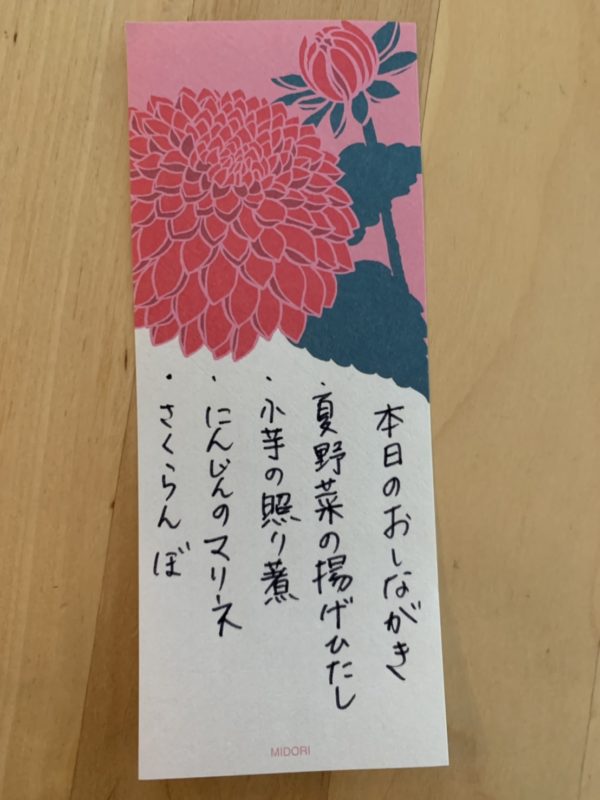 本日のおしながき
・夏野菜の揚げひたし
・小芋の照り煮
・にんじんのマリネ
・さくらんぼ
MIDORI